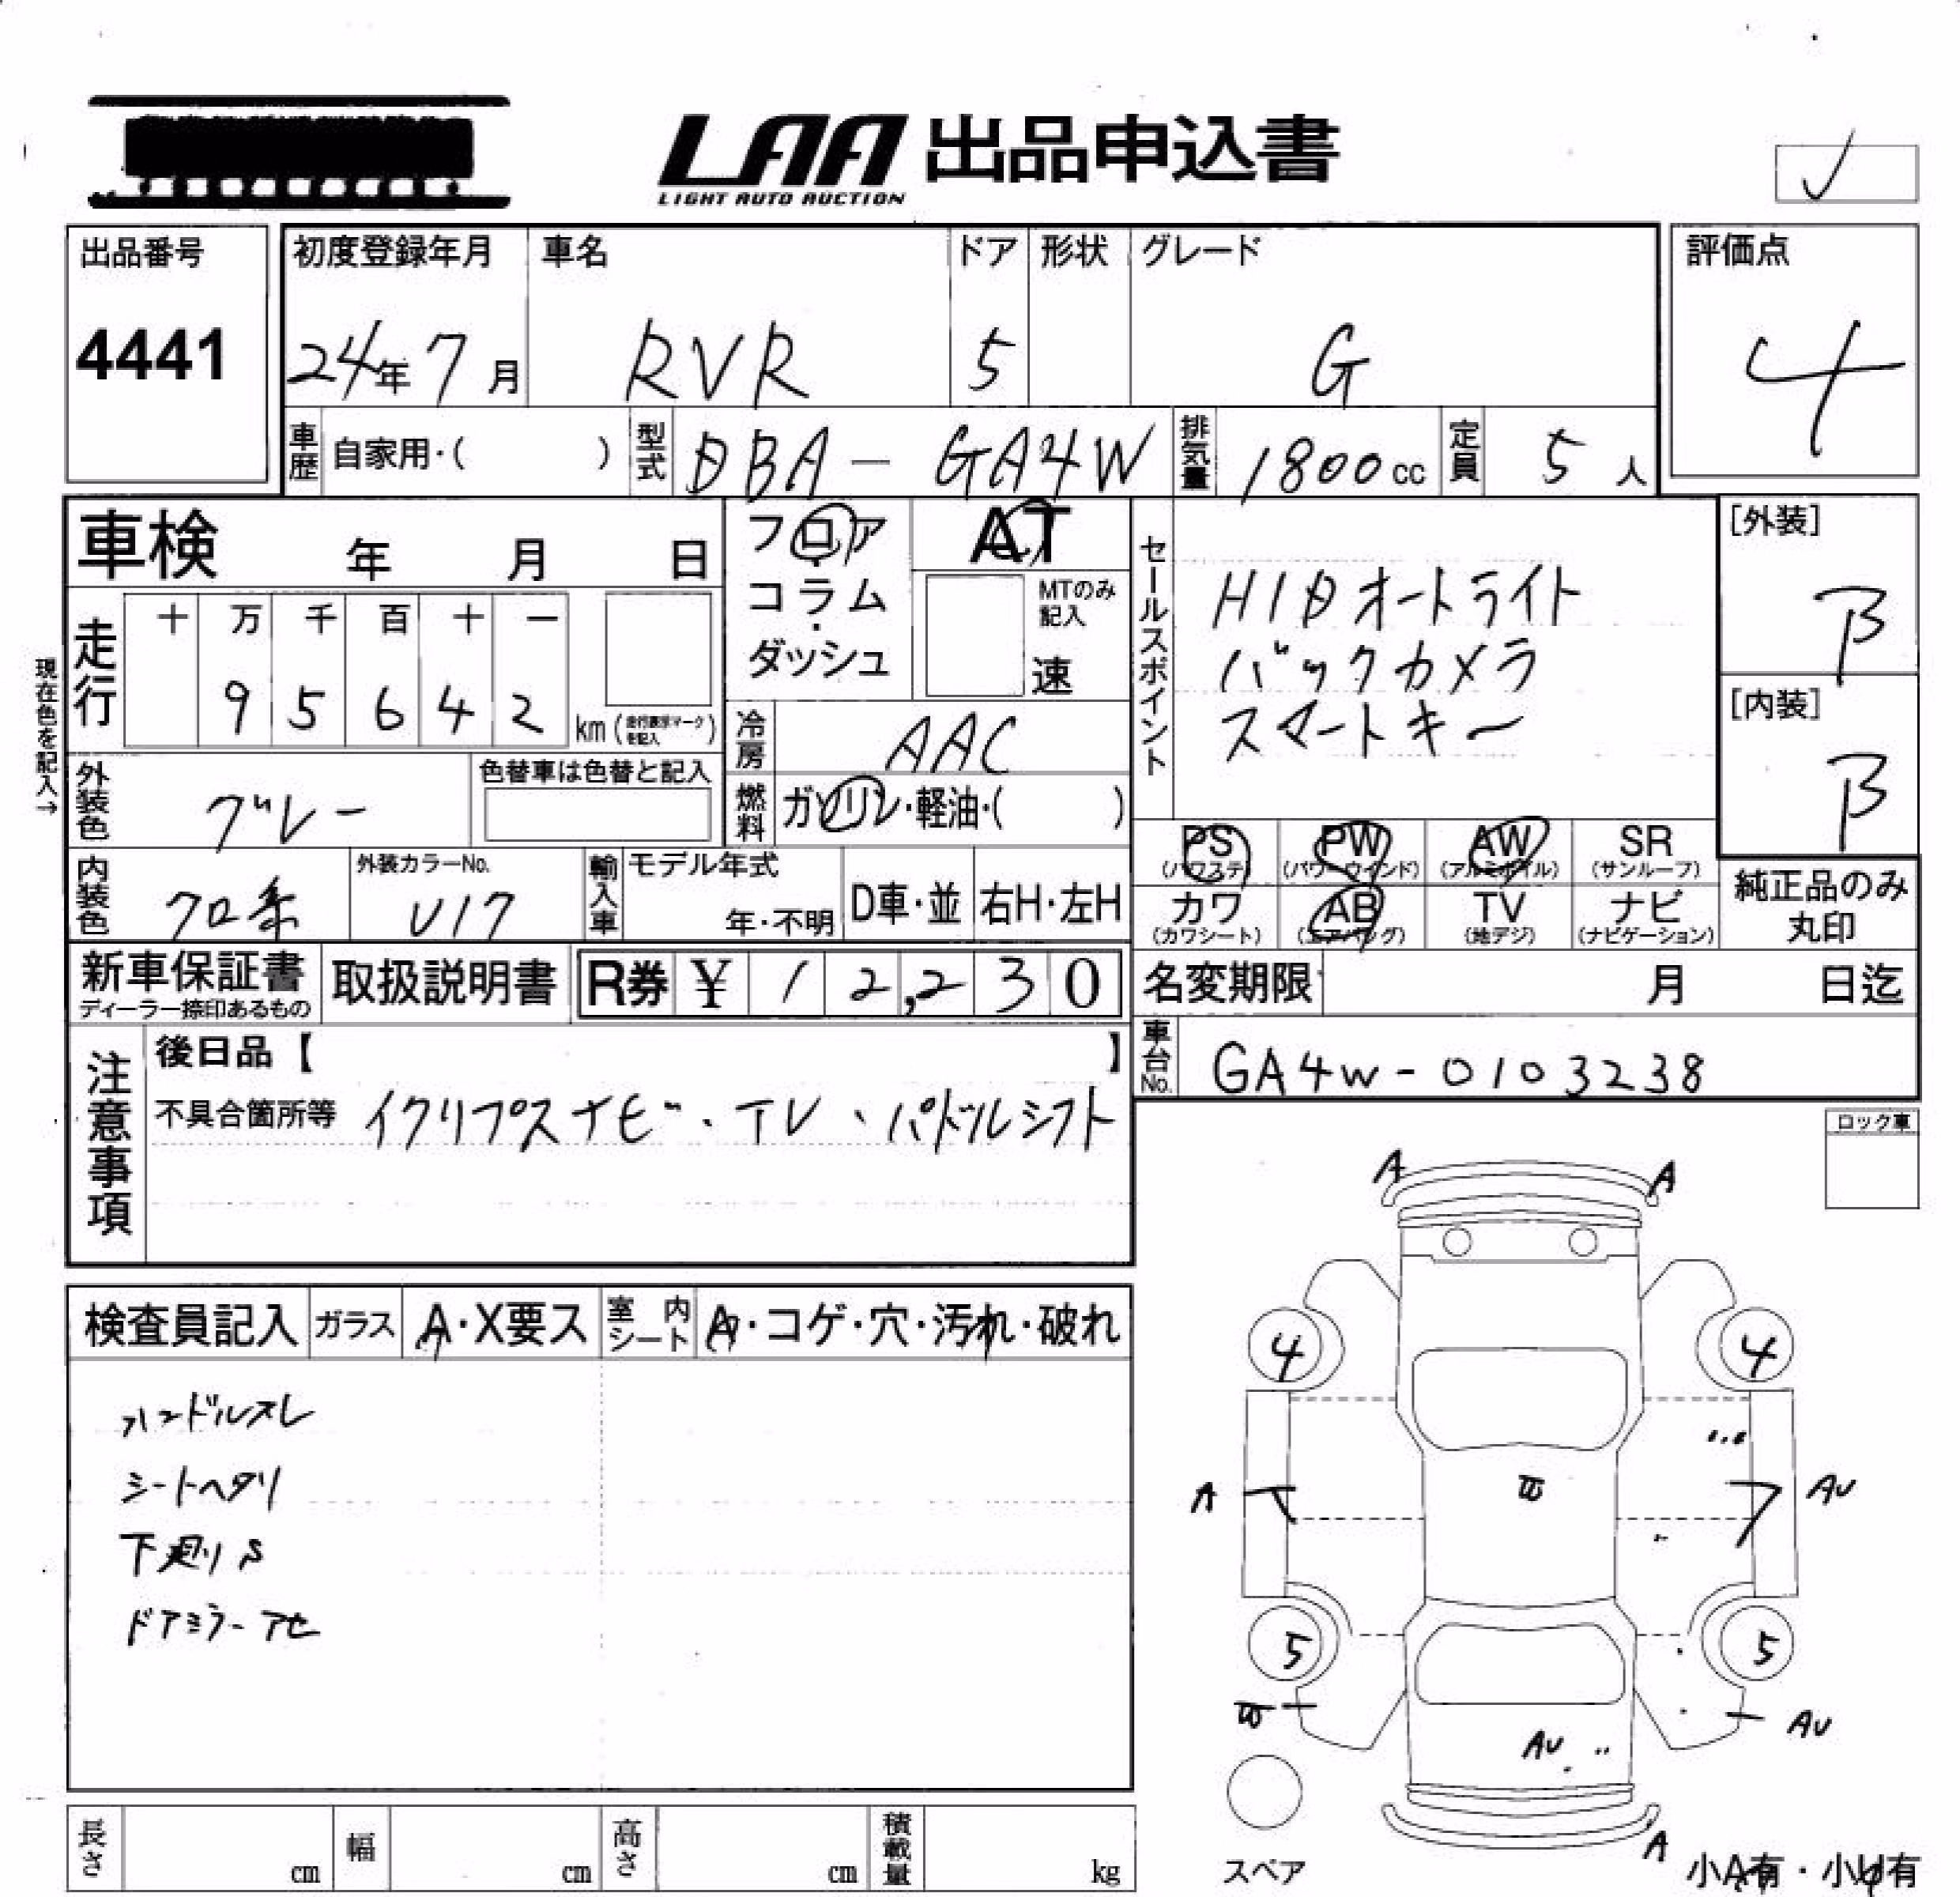 LAA 出品申込書
LIGHT AUTO AUCTION
出品番号
4441
初度登録年月
24年 7月
車名
RVR
ドア
5
形状
グレード
G
評価点
4
車歴
自家用・( )
型式
DBA - GA4W
排気量
1800 cc
定員
5 人
車検 年 月 日
フロア・コラム・ダッシュ
AT
MTのみ記入
速
セールスポイント
HIDオートライト
バックカメラ
スマートキー
[外装]
B
[内装]
B
現在色を記入→
走行
十 万 千 百 十 一
9 5 6 4 2
km (走行表示マークを記入)
冷房
AAC
外装色
グレー
色替車は色替と記入
燃料
ガソリン・軽油・( )
PS (パワステ)
PW (パワーウインド)
AW (アルミホイル)
SR (サンルーフ)
カワ (カワシート)
AB (エアバッグ)
TV (地デジ)
ナビ (ナビゲーション)
純正品のみ丸印
内装色
クロ系
外装カラーNo.
U17
輸入車
モデル年式
年・不明
D車・並
右H・左H
新車保証書
ディーラー捺印あるもの
取扱説明書
R券 ¥ 12,230
名変期限 月 日迄
車台No.
GA4W-0103238
注意事項
後日品【 】
不具合箇所等 イクリプスナビ・TV、パドルシフト
ロック車
検査員記入
ガラス
A・X要ス
室内シート
A・コゲ・穴・汚れ・破れ
ハンドルスレ
シートヘタリ
下廻りS
ドアミラーアセ
A A
4 4
A AU
5 5
AU
AU
A
スペア
小A有・小U有
長さ cm
幅 cm
高さ cm
積載量 kg